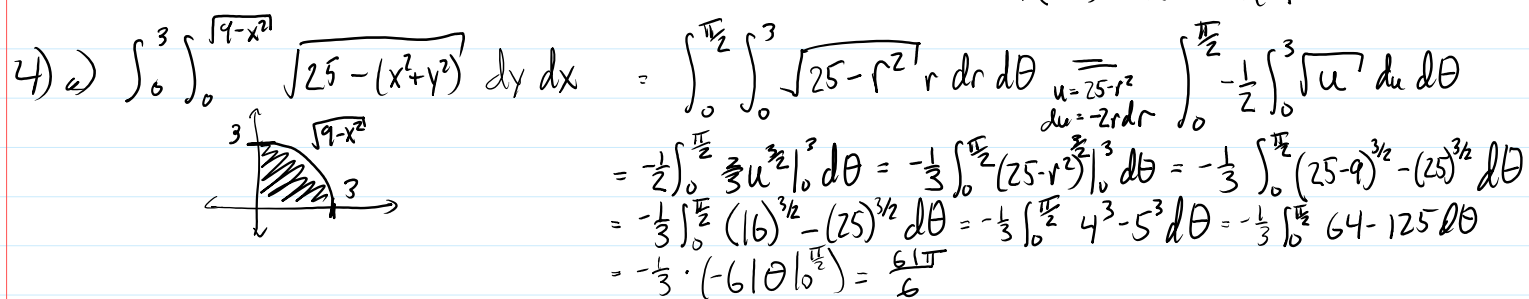 4) a) ∫₀³ ∫₀^√(9-x²) √(25-(x²+y²)) dy dx = ∫₀^(π/2) ∫₀³ √(25-r²) r dr dθ = ∫₀^(π/2) -1/2 ∫₀³ √u du dθ
u=25-r²
du=-2rdr
3 √(9-x²)
3
= -1/2 ∫₀^(π/2) 2/3 u^(3/2) |₀³ dθ = -1/3 ∫₀^(π/2) (25-r²)^(3/2) |₀³ dθ = -1/3 ∫₀^(π/2) (25-9)^(3/2) - (25)^(3/2) dθ
= -1/3 ∫₀^(π/2) (16)^(3/2) - (25)^(3/2) dθ = -1/3 ∫₀^(π/2) 4³-5³ dθ = -1/3 ∫₀^(π/2) 64-125 dθ
= -1/3 · (-61θ |₀^(π/2)) = 61π/6